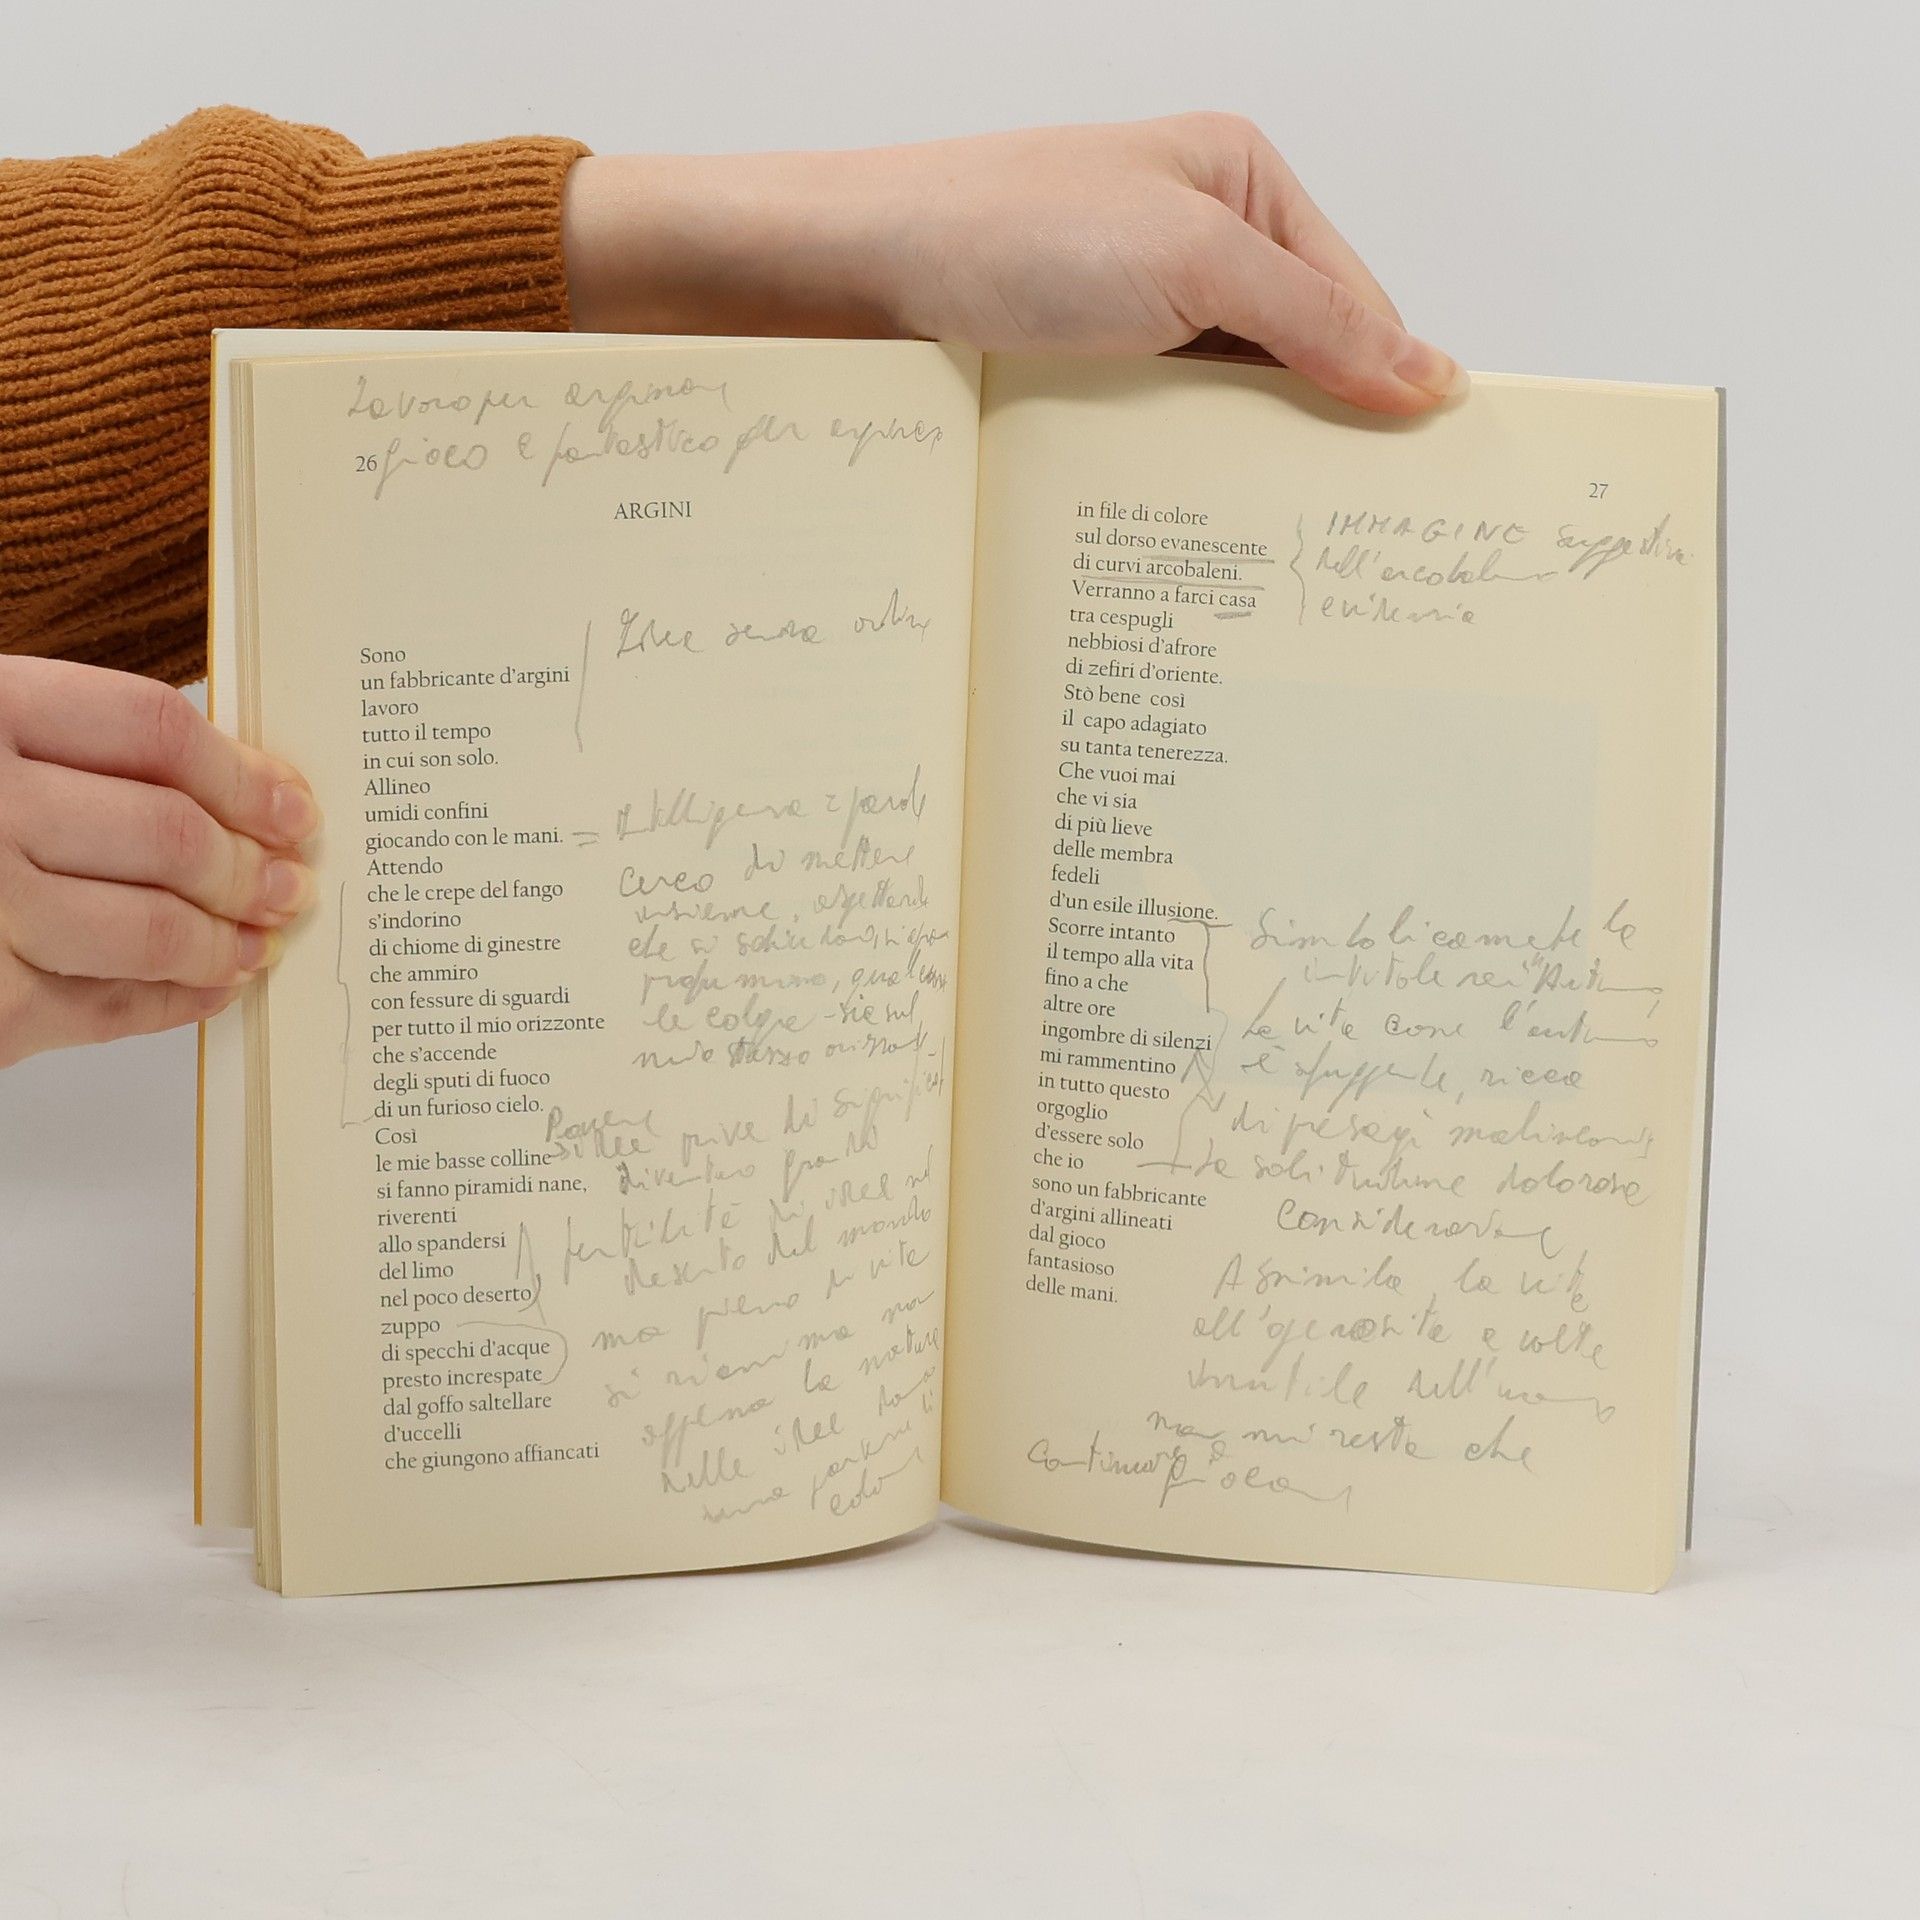 Lavoro per arginare
gioco e fantastico per
26
ARGINI
Sono
un fabbricante d'argini
lavoro
tutto il tempo
in cui son solo.
Allineo
umidi confini
giocando con le mani.
Attendo
che le crepe del fango
s'indorino
di chiome di ginestre
che ammiro
con fessure di sguardi
per tutto il mio orizzonte
che s'accende
degli sputi di fuoco
di un furioso cielo.
Così
le mie basse colline
si fanno piramidi nane,
riverenti
allo spandersi
del limo
nel poco deserto
zuppo
di specchi d'acque
presto increspate
dal goffo saltellare
d'uccelli
che giungono affiancati
Idee senza ordine
= Intelligenza e parole
Cerco di mettere
insieme, aspettando
che si schiudano,
profumino, qual
le colga - sia sul
mio stesso
Povere
idee prive di
diventano grandi
fertilità di idee nel
deserto del mondo
ma pieno di vite
si rianima non
appena la natura
nelle idee
una
27
in file di colore
sul dorso evanescente
di curvi arcobaleni.
Verranno a farci casa
tra cespugli
nebbiosi d'afrore
di zefiri d'oriente.
Stò bene così
il capo adagiato
su tanta tenerezza.
Che vuoi mai
che vi sia
di più lieve
delle membra
fedeli
d'un esile illusione.
Scorre intanto
il tempo alla vita
fino a che
altre ore
ingombre di silenzi
mi rammentino
in tutto questo
orgoglio
d'essere solo
che io
sono un fabbricante
d'argini allineati
dal gioco
fantasioso
delle mani.
IMMAGINE suggestiva
dell'arcobaleno
evidenzia
Simbolicamente la
intitolerei "Autunno"
La vita come l'autunno
è sfuggente, ricca
di presagi malinconici
La solitudine dolorosa
considerazione
Assimila la vita
all'generosità a volte
inutile dell'uomo
non mi resta che
continuare a giocare